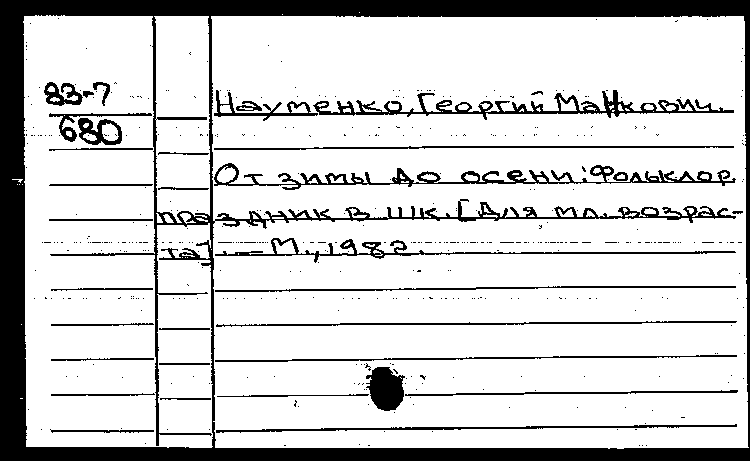 83-7
680
Науменко, Георгий Маркович.
От зимы до осени: Фольклор.
праздник в шк. [Для мл. возрас-
та]. — М., 1982.